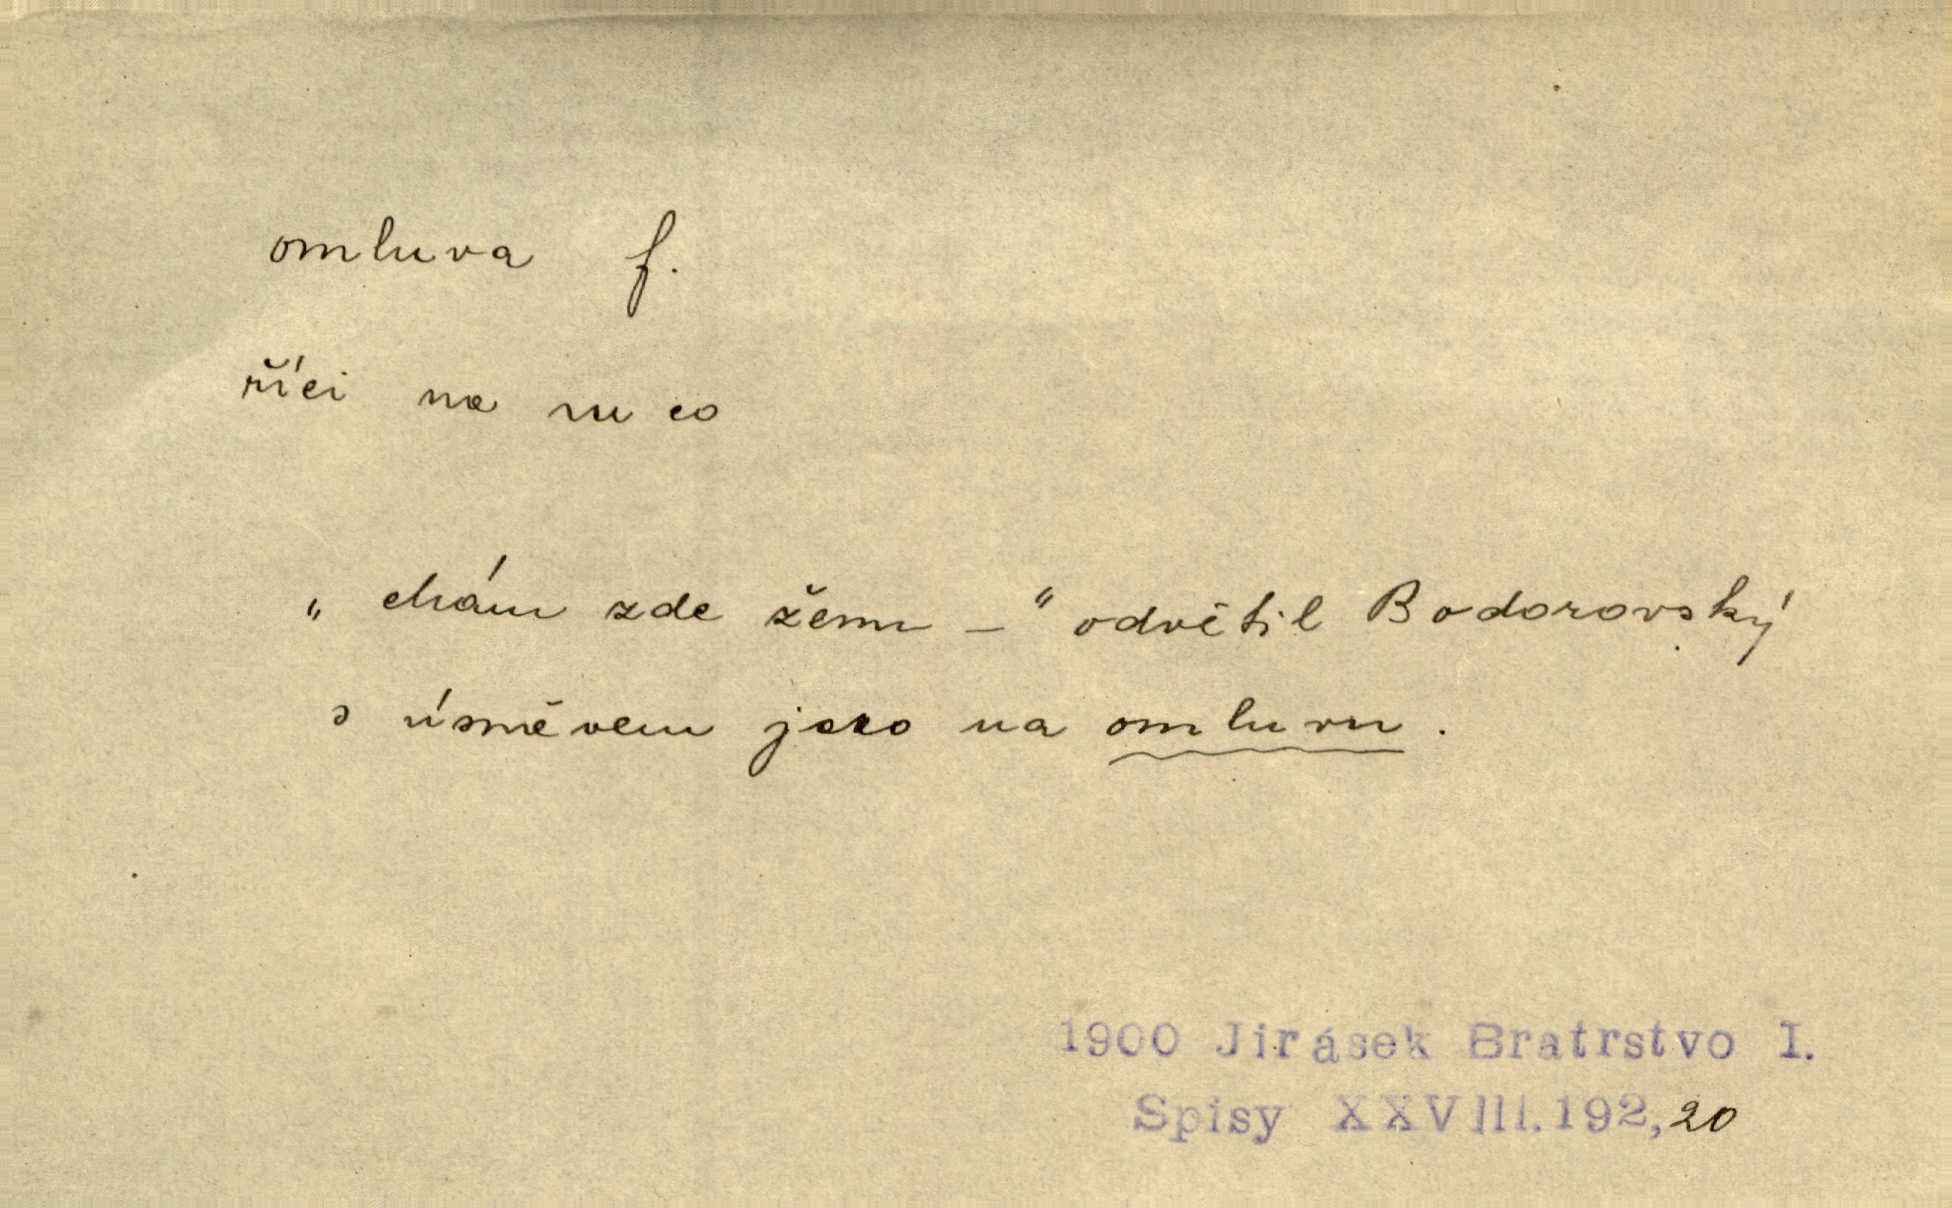 omluva f.
říci na ni co
„Mám zde ženu –" odvětil Bodorovský
s úsměvem jako na omluvu.
1900 Jirásek Bratrstvo I.
Spisy XXVIII.192,20